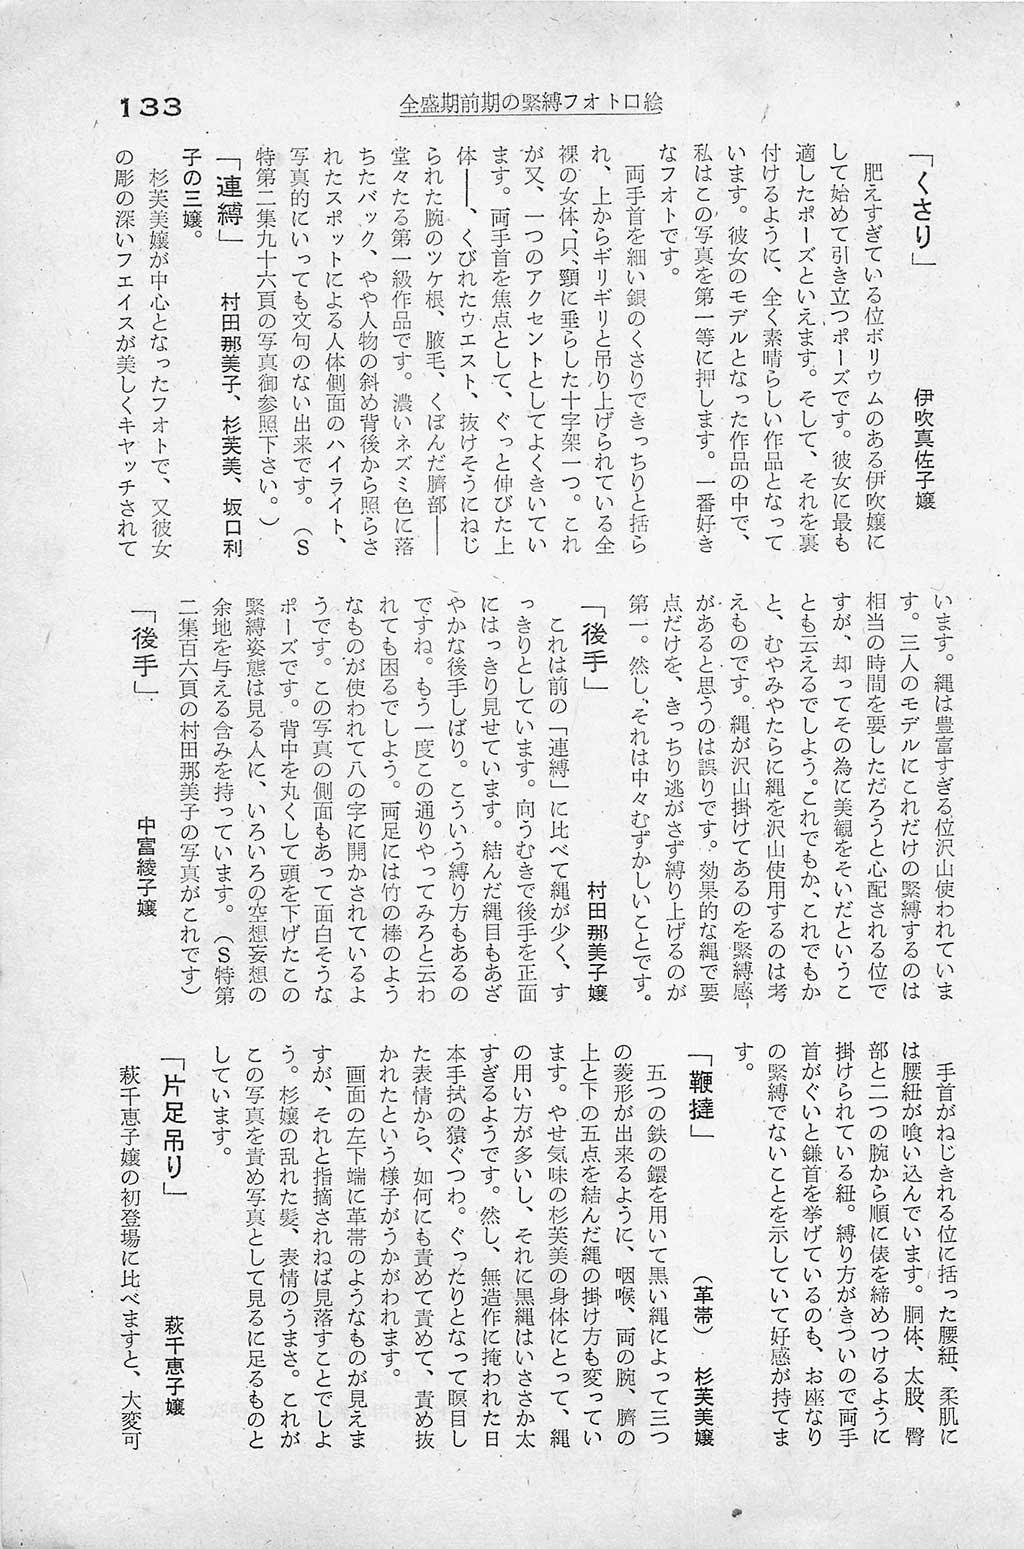 133
全盛期前期の緊縛フォト口絵
「くさり」　伊吹真佐子嬢
肥えすぎている位ボリウムのある伊吹嬢に
して始めて引き立つポーズです。彼女に最も
適したポーズといえます。そして、それを裏
付けるように、全く素晴らしい作品となって
います。彼女のモデルとなった作品の中で、
私はこの写真を第一等に押します。一番好き
なフオトです。
両手首を細い銀のくさりできっちりと括ら
れ、上からギリギリと吊り上げられている全
裸の女体、只、頸に垂らした十字架一つ。これ
が又、一つのアクセントとしてよくきいてい
ます。両手首を焦点として、ぐっと伸びた上
体――、くびれたウエスト、抜けそうにねじ
られた腕のツケ根、腋毛、くぼんだ臍部――
堂々たる第一級作品です。濃いネズミ色に落
ちたバック、やや人物の斜め背後から照らさ
れたスポットによる人体側面のハイライト、
写真的にいっても文句のない出来です。（Ｓ
特第二集九十六頁の写真御参照下さい。）
「連縛」　村田那美子、杉芙美、坂口利
子の三嬢。
杉芙美嬢が中心となったフオトで、又彼女
の彫の深いフエイスが美しくキャッチされて
います。縄は豊富すぎる位沢山使われていま
す。三人のモデルにこれだけの緊縛するのは
相当の時間を要しただろうと心配される位で
すが、却ってその為に美観をそいだというこ
とも云えるでしよう。これでもか、これでもか
と、むやみやたらに縄を沢山使用するのは考
えものです。縄が沢山掛けてあるのを緊縛感
があると思うのは誤りです。効果的な縄で要
点だけを、きっちり逃がさず縛り上げるのが
第一。然し、それは中々むずかしいことです。
「後手」　村田那美子嬢
これは前の「連縛」に比べて縄が少く、す
っきりとしています。向うむきで後手を正面
にはっきり見せています。結んだ縄目もあざ
やかな後手しばり。こういう縛り方もあるの
ですね。もう一度この通りやってみろと云わ
れても困るでしよう。両足には竹の棒のよう
なものが使われて八の字に開かされているよ
うです。この写真の側面もあって面白そうな
ポーズです。背中を丸くして頭を下げたこの
緊縛姿態は見る人に、いろいろの空想妄想の
余地を与える含みを持っています。（Ｓ特第
二集百六頁の村田那美子の写真がこれです）
「後手」　中富綾子嬢
手首がねじきれる位に括った腰紐、柔肌に
は腰紐が喰い込んでいます。胴体、太股、臀
部と二つの腕から順に俵を締めつけるように
掛けられている紐。縛り方がきついので両手
首がぐいと鎌首を挙げているのも、お座なり
の緊縛でないことを示していて好感が持てま
す。
「鞭撻」　（革帯）　杉芙美嬢
五つの鉄の鐶を用いて黒い縄によって三つ
の菱形が出来るように、咽喉、両の腕、臍の
上と下の五点を結んだ縄の掛け方も変ってい
ます。やせ気味の杉芙美の身体にとって、縄
の用い方が多いし、それに黒縄はいささか太
すぎるようです。然し、無造作に掩われた日
本手拭の猿ぐつわ。ぐったりとなって瞑目し
た表情から、如何にも責めて責めて、責め抜
かれたという様子がうかがわれます。
画面の左下端に革帯のようなものが見えま
すが、それと指摘されねば見落すことでしよ
う。杉嬢の乱れた髪、表情のうまさ。これが
この写真を責め写真として見るに足るものと
しています。
「片足吊り」　萩千恵子嬢
萩千恵子嬢の初登場に比べますと、大変可